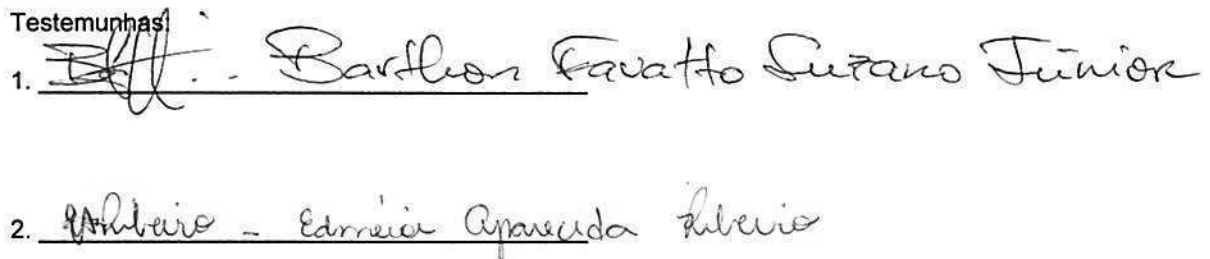 Testemunhas:
1. Barthon Favatto Suzano Júnior
2. EARibeiro - Edméia Aparecida Ribeiro